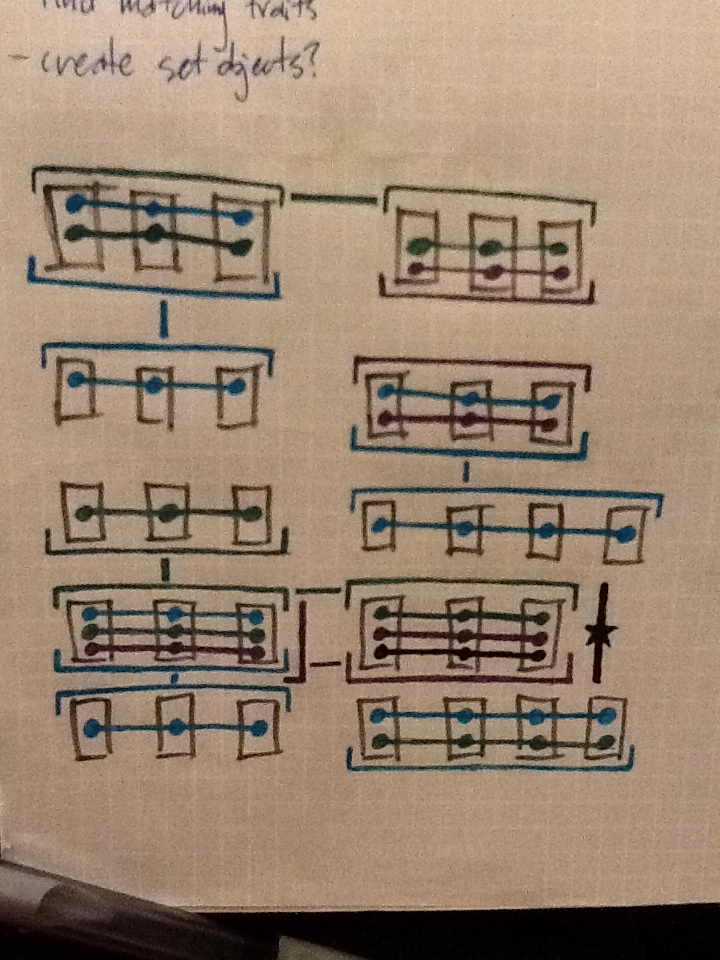 find matching traits
- create set objects?